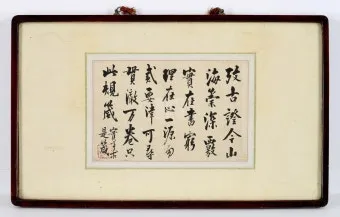 攷古證今山
海崇深覈
實在書窮
理在心一源
貳要津可尋
貫澈万卷只
此規箴
是箴